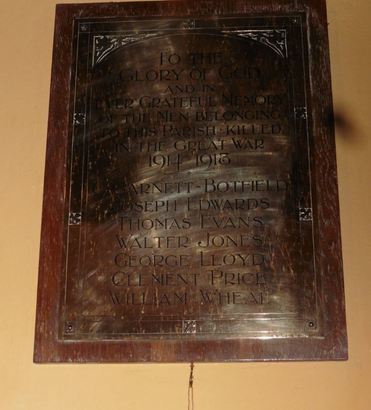 TO THE
GLORY OF GOD
AND IN
EVER GRATEFUL MEMORY
OF THE MEN BELONGING
TO THIS PARISH KILLED
IN THE GREAT WAR
1914-1918
GARNETT-BOTFIELD
JOSEPH EDWARDS
THOMAS EVANS
WALTER JONES
GEORGE LLOYD
CLEMENT PRICE
WILLIAM WHEAL